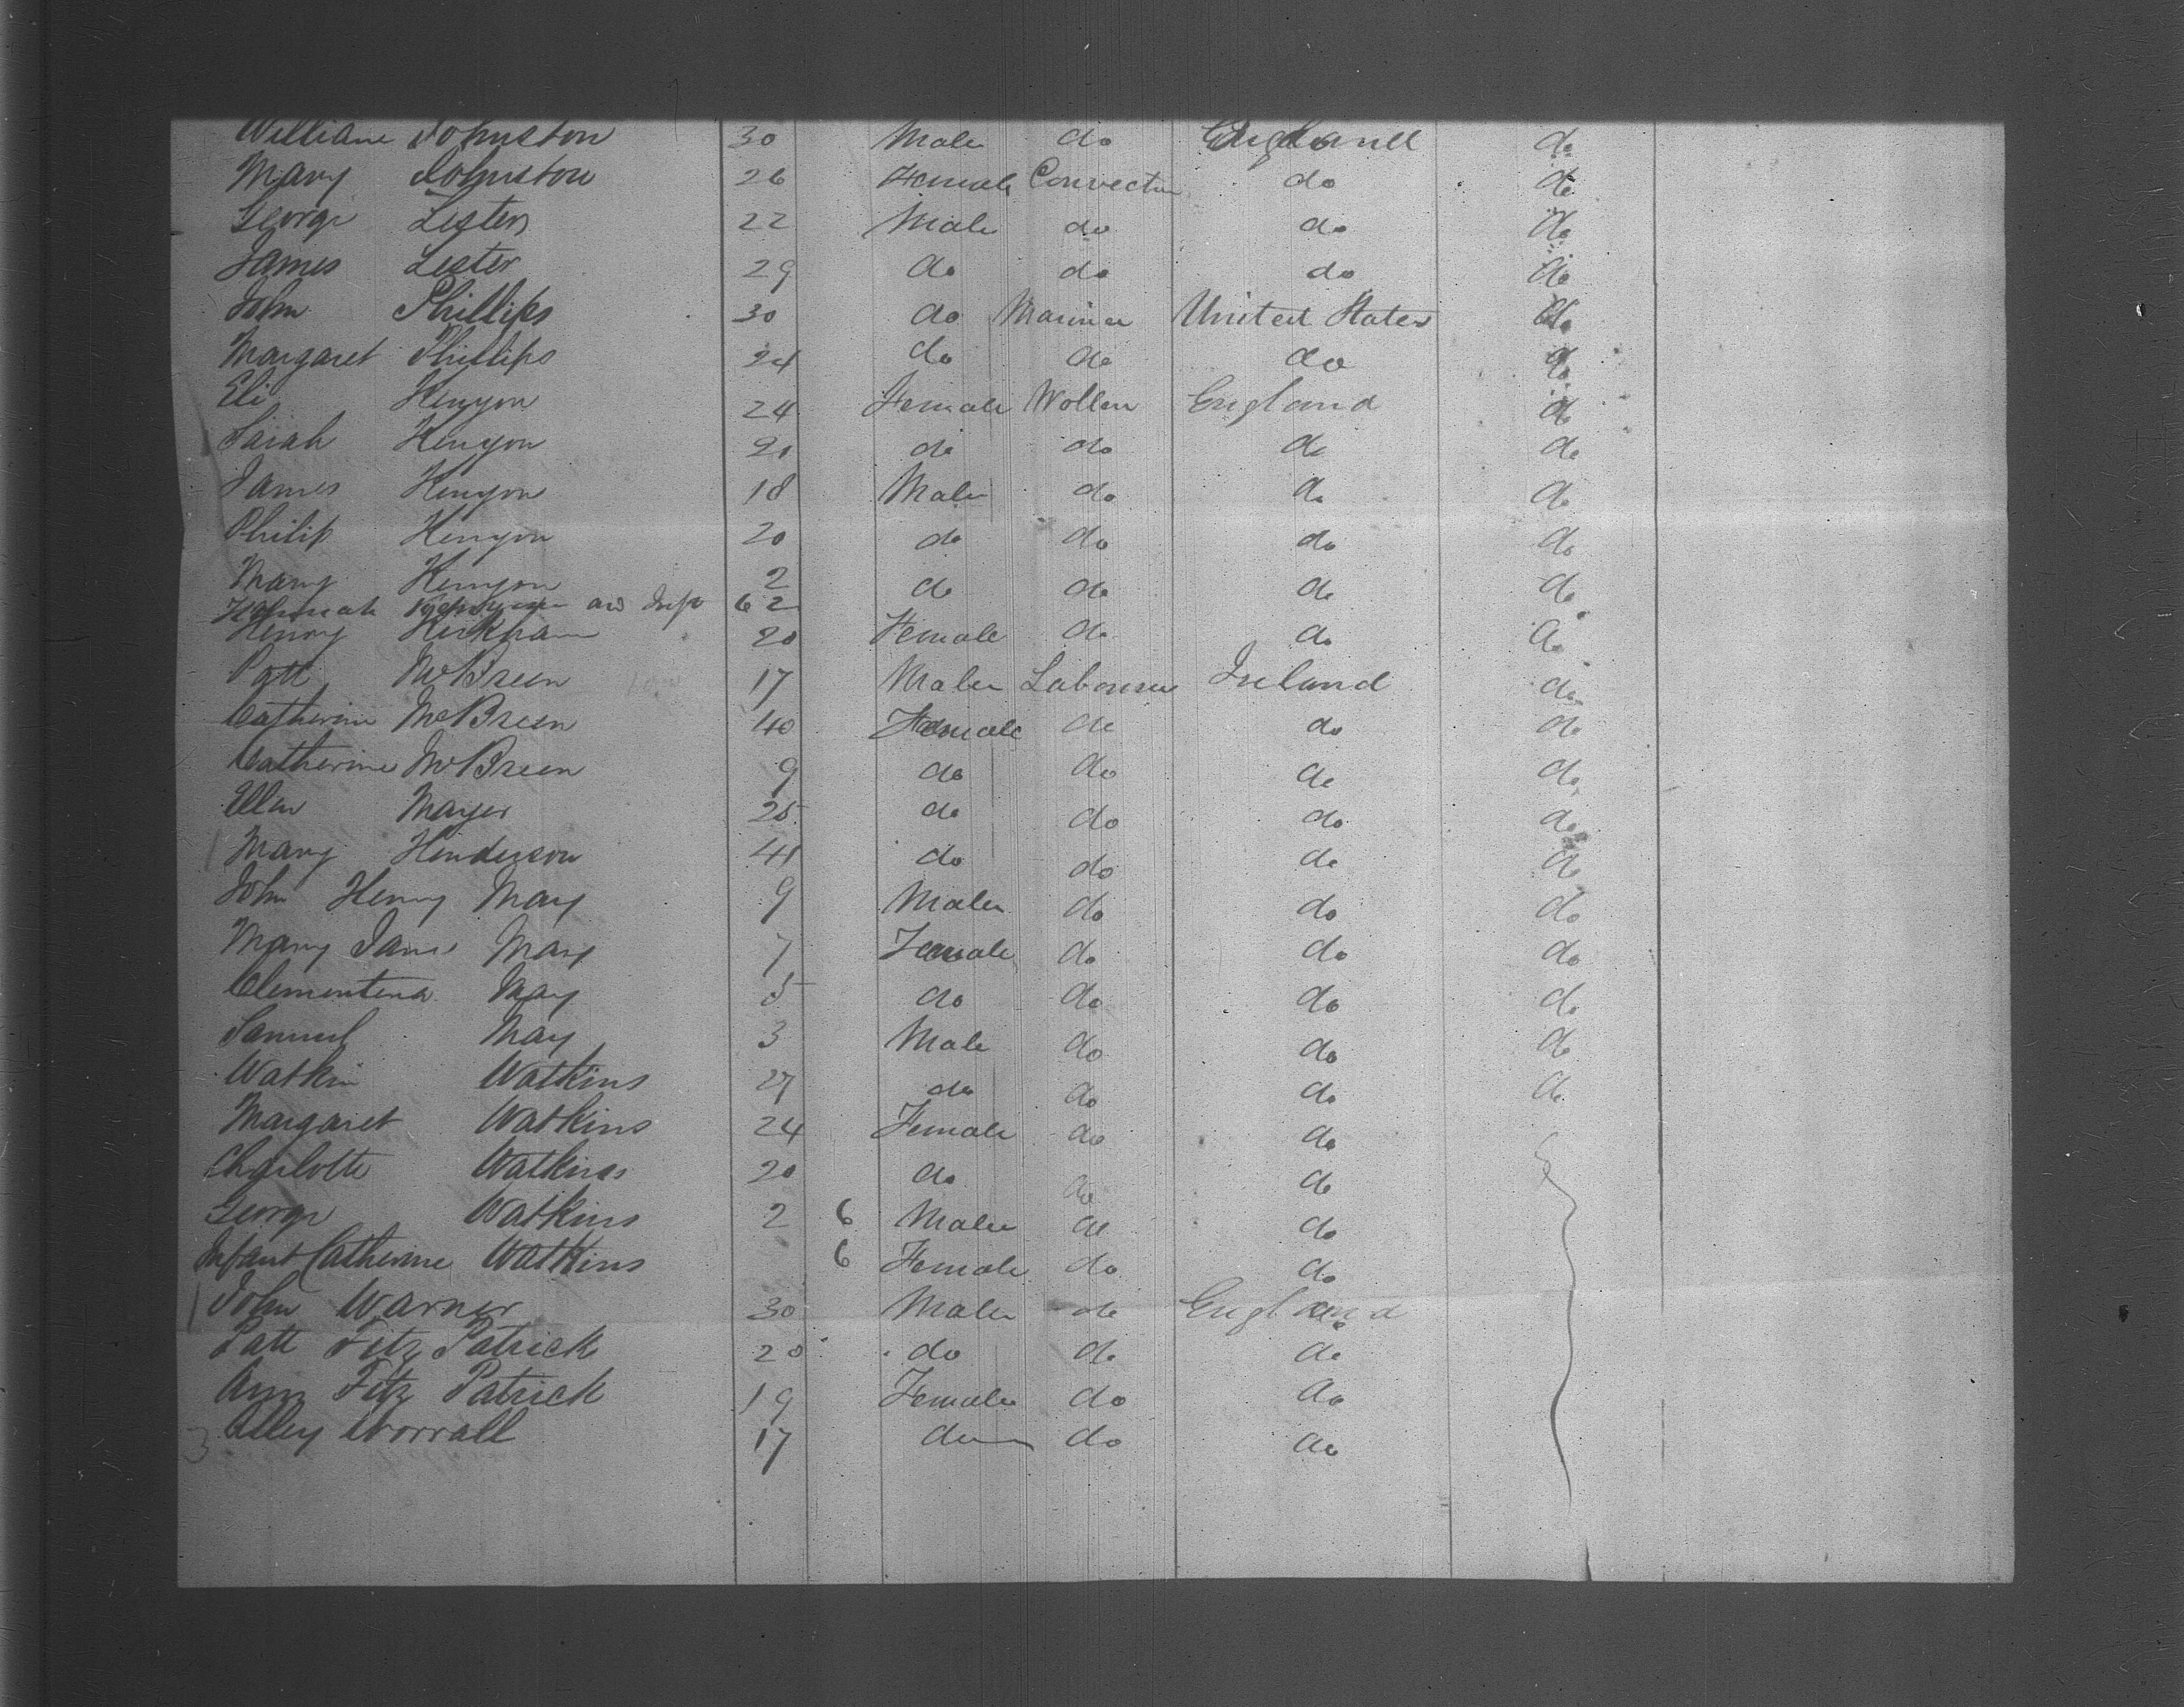 William Johnston 30 Male do England do
Mary Johnston 26 Female do do
George Lester 22 Male do do do
James Lester 29 do do do do
John Phillips 30 do Mariner United States do
Margaret Phillips 24 do do do do
Eli Kenyon 24 Female Wollen England do
Sarah Kenyon 21 do do do do
James Kenyon 18 Male do do do
Philip Kenyon 20 do do do do
Mary Kenyon 2 do do do do
62
Henry Kirkham 20 Female do do do
Patt McBreen 17 Male Labourer Ireland do
Catherine McBreen 40 Female do do do
Catherine McBreen 9 do do do do
Ellen Mayer 25 do do do do
Mary Henderson 41 do do do do
John Henry May 9 Male do do do
Mary Jane May 7 Female do do do
Clementena May 5 do do do do
Samuel May 3 Male do do do
Watkin Watkins 27 do do do do
Margaret Watkins 24 Female do do
Charlotte Watkins 20 do do do
George Watkins 2 6 Male do do
Infant Catherine Watkins 6 Female do do
John Warner 30 Male do England
Patt Fitz Patrick 20 do do do
Ann Fitz Patrick 19 Female do do
3 Alley Worrall 17 do do do